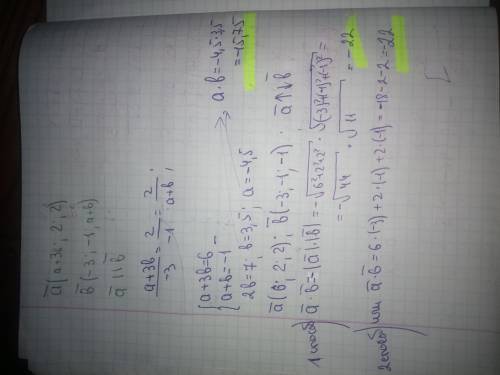 ā(a+3b; 2; 2)
b̄(-3; -1; a+b)
ā || b̄
a+3b/-3 = 2/-1 = 2/a+b;
{a+3b=6 -
{a+b=-1
2b=7; b=3,5; a=-4,5
a·b=-4,5·3,5
=-15,75
ā(6; 2; 2); b̄(-3; -1; -1). ā↑↓b̄
1 способ) ā·b̄=-|ā|·|b̄|=-√6²+2²+2² · √(-3)²+(-1)²+(-1)² =
=-√44 · √11 = -22
2 способ) или ā·b̄=6·(-3)+2·(-1)+2·(-1)=-18-2-2=-22